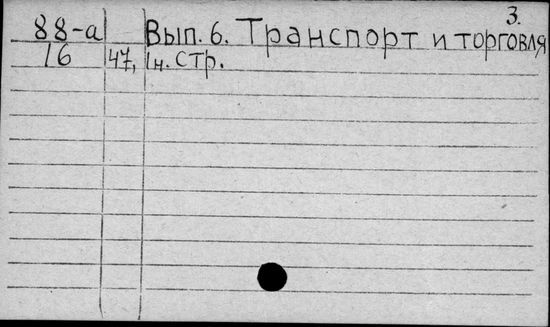 3.
88-а Вып. 6. Транспорт и торговля
16 47, 1н. стр.